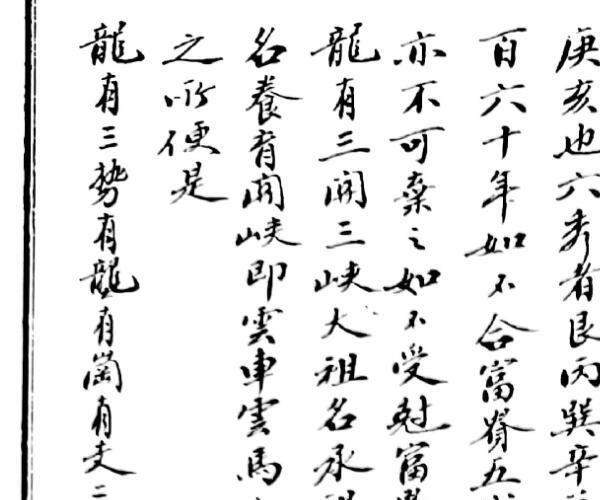 庚亥也六秀者艮丙巽辛
百六十年如不合富脊五
亦不可棄之如不受尅富
龍有三開三峽大祖名承
名養育開峽即雲車雲馬
之所便是
龍有三勢有龍有崗有支二